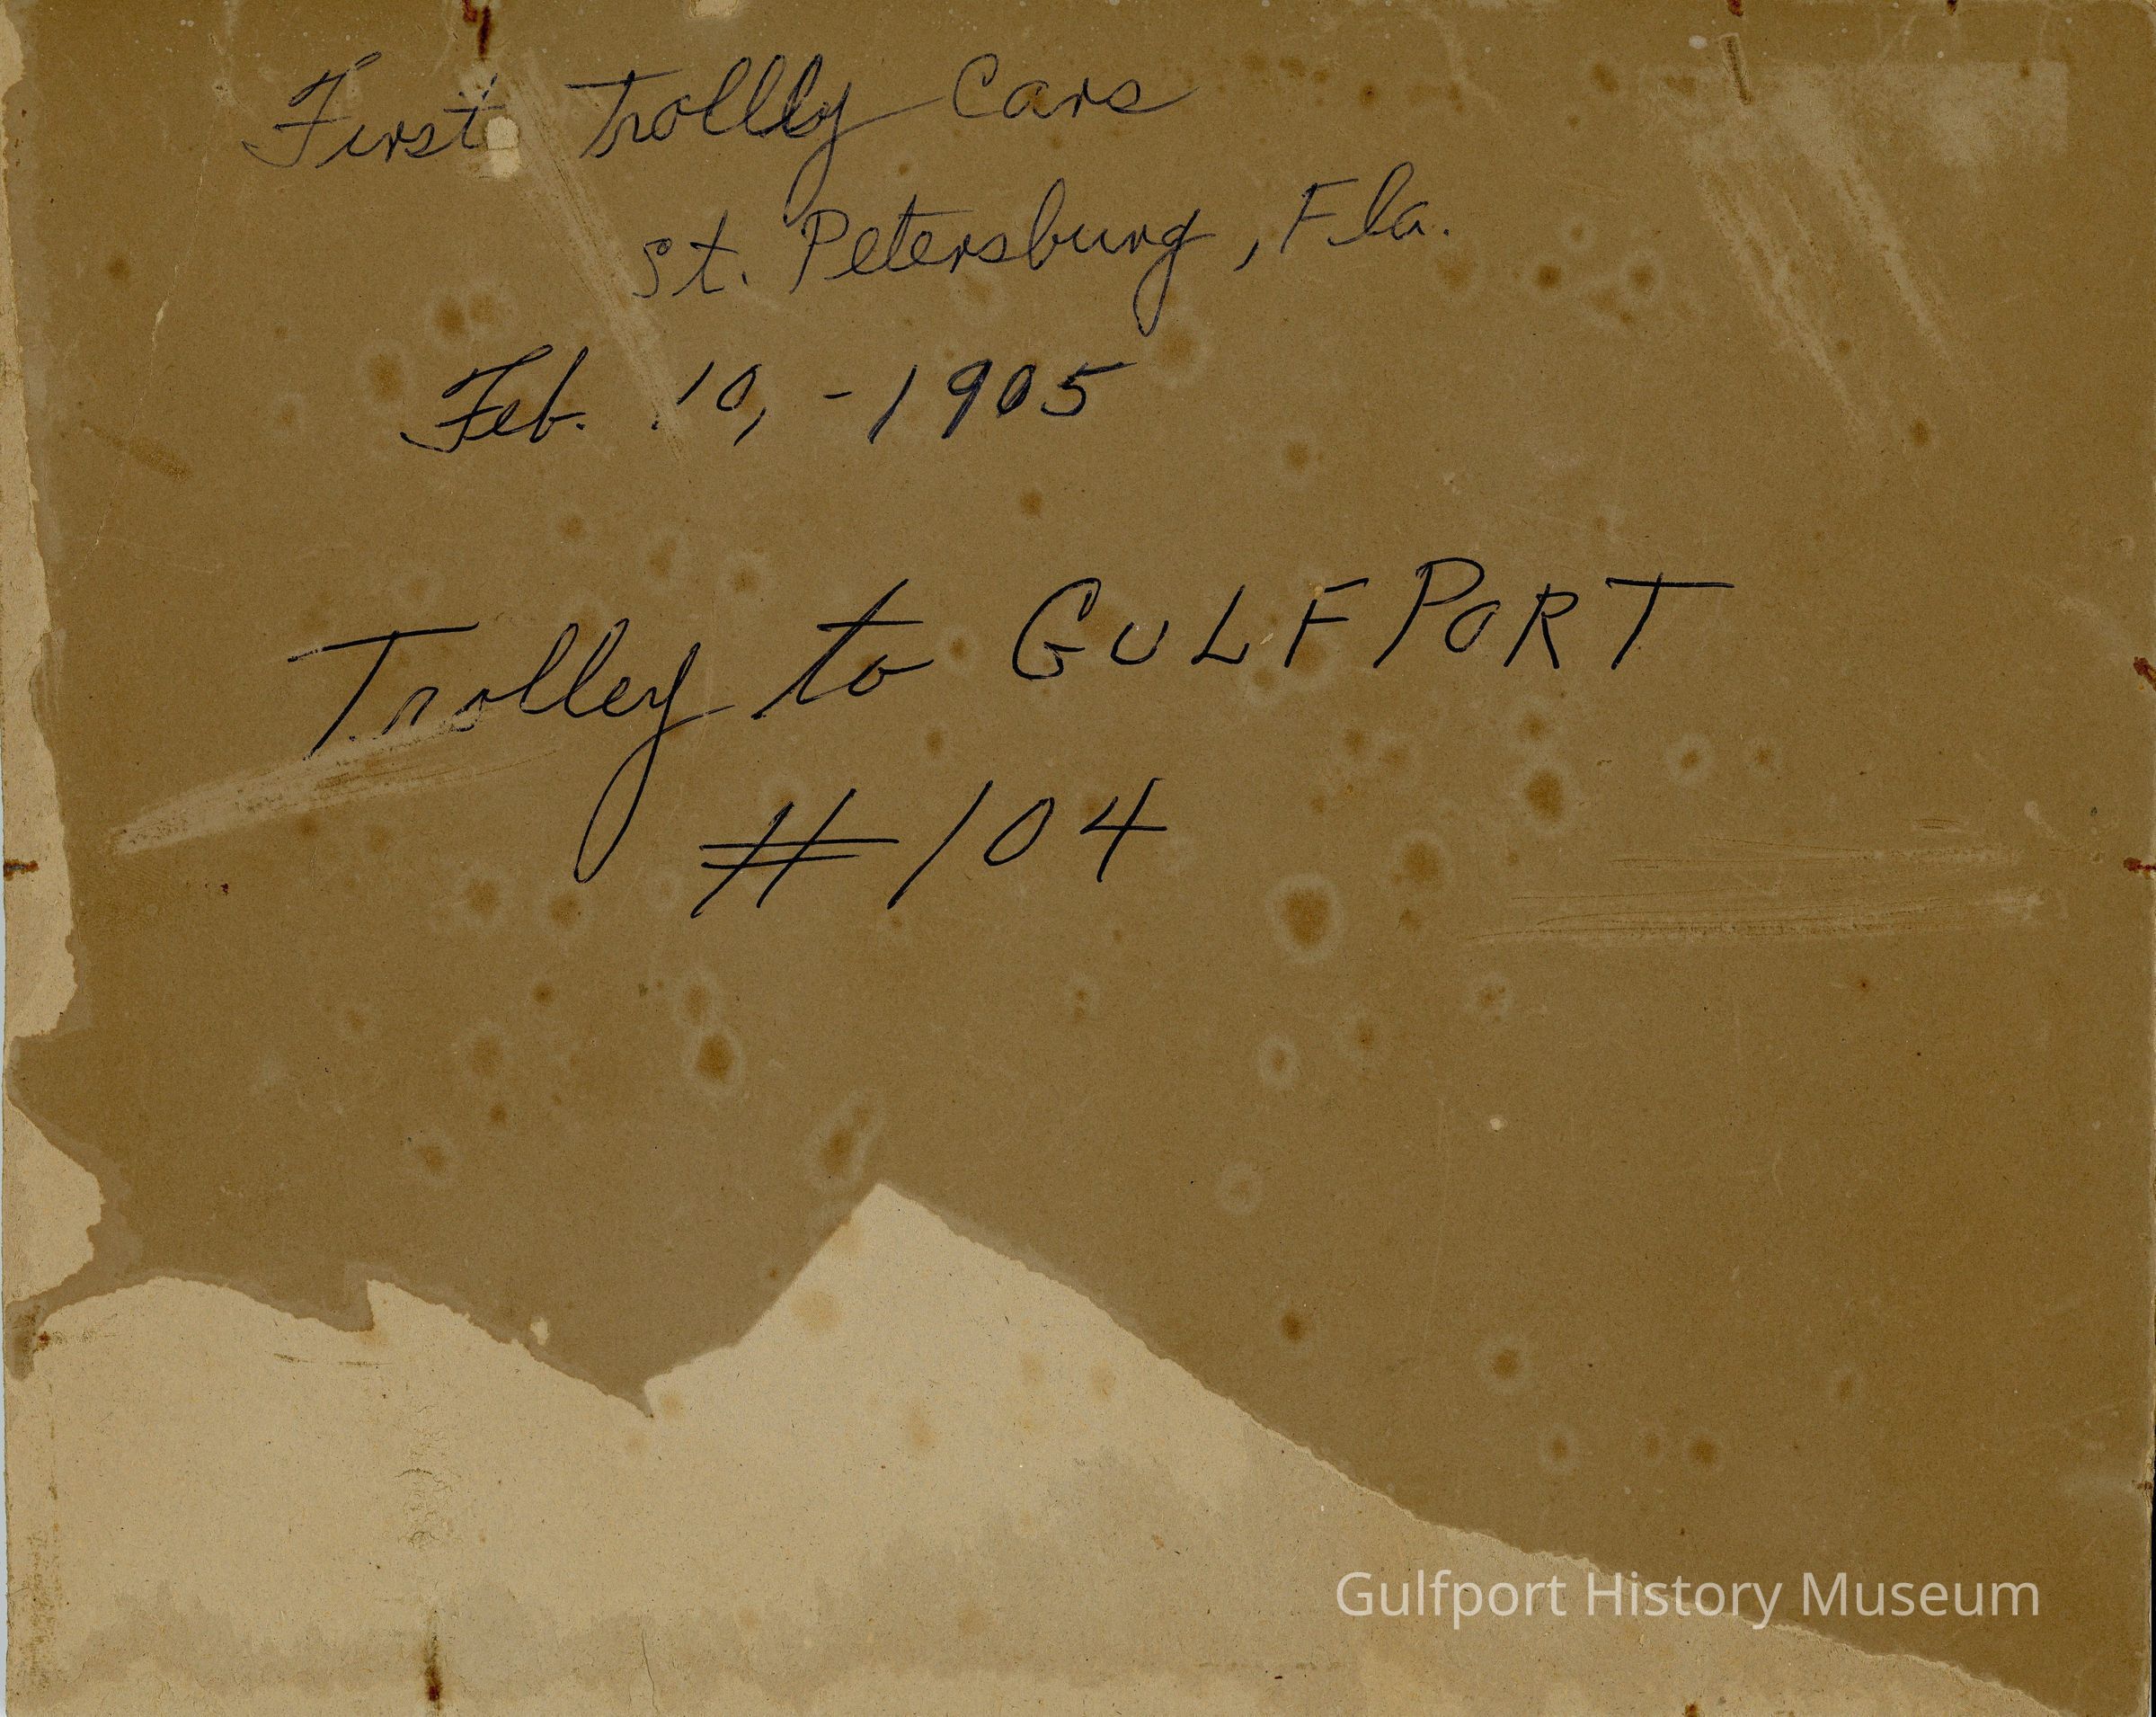 First Trollly Cars
St. Petersburg, Fla.
Feb. 10, - 1905
Trolley to GULFPORT
# 104
Gulfport History Museum